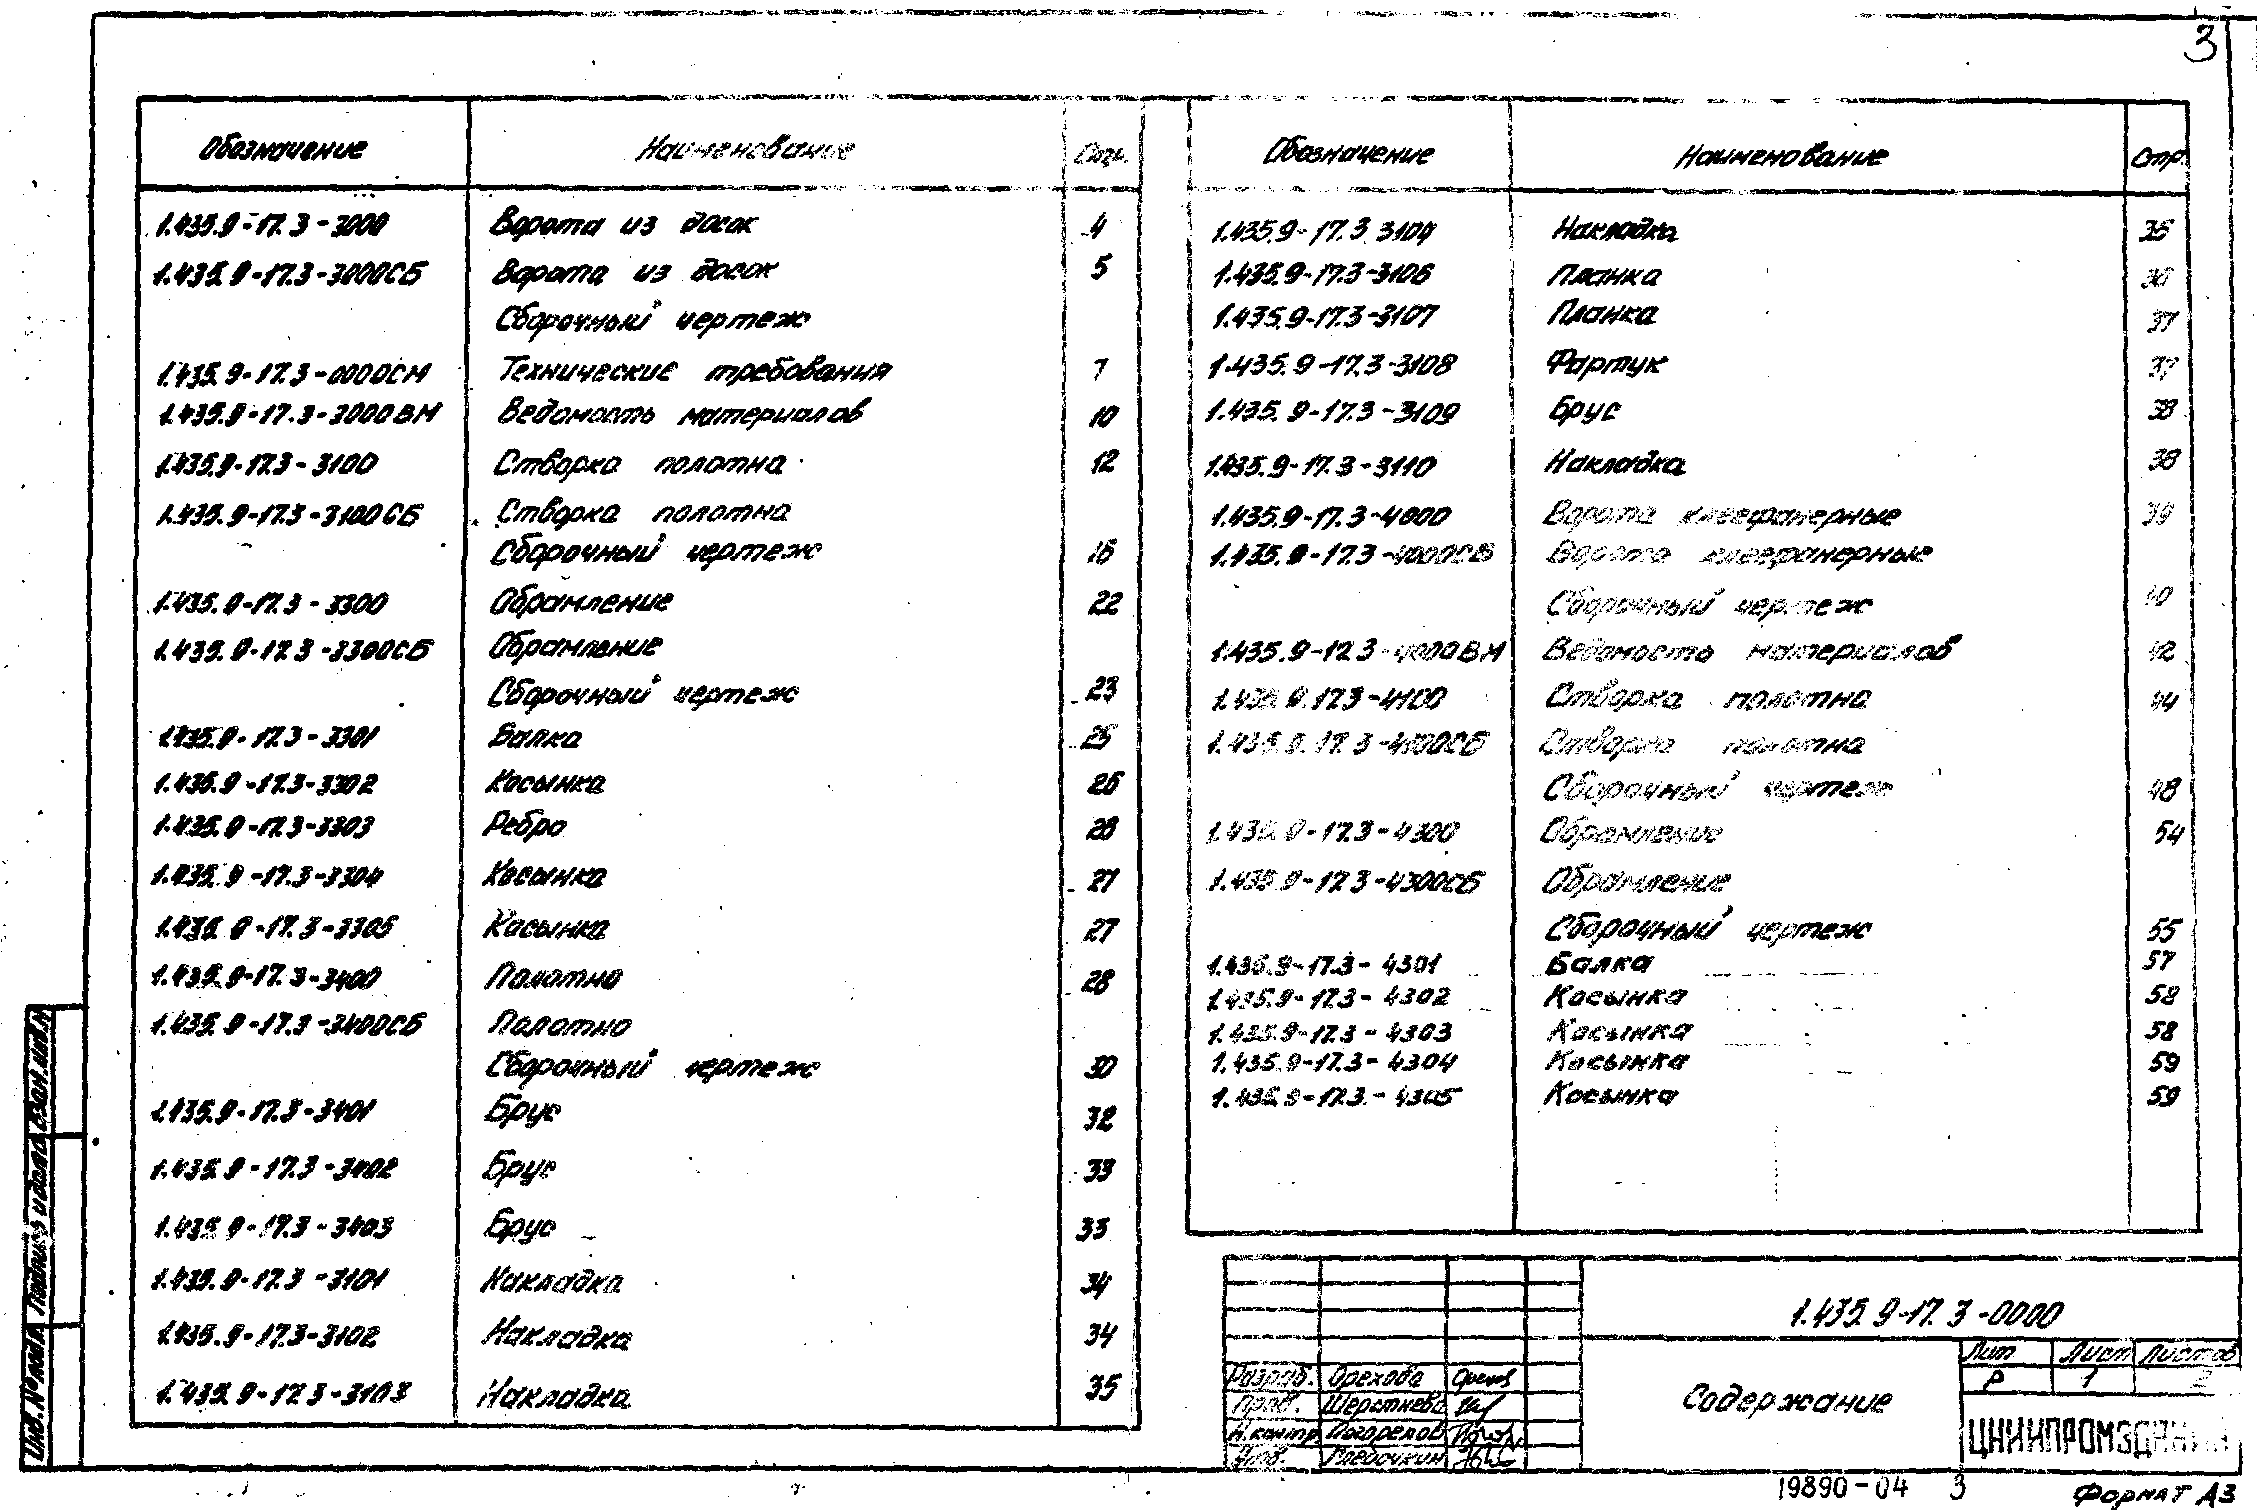 3
Обозначение Наименование Стр.
1.435.9-17.3-3000 Ворота из досок 4
1.435.9-17.3-3000СБ Ворота из досок 5
Сборочный чертеж
1.435.9-17.3-0000СМ Технические требования 7
1.435.9-17.3-3000ВМ Ведомость материалов 10
1.435.9-17.3-3100 Створка полотна 12
1.435.9-17.3-3100СБ Створка полотна
Сборочный чертеж 16
1.435.9-17.3-3300 Обрамление 22
1.435.9-17.3-3300СБ Обрамление
Сборочный чертеж 23
1.435.9-17.3-3301 Балка 25
1.435.9-17.3-3302 Косынка 26
1.435.9-17.3-3303 Ребро 26
1.435.9-17.3-3304 Косынка 27
1.435.9-17.3-3305 Косынка 27
1.435.9-17.3-3400 Полотно 28
1.435.9-17.3-3400СБ Полотно
Сборочный чертеж 30
1.435.9-17.3-3401 Брус 32
1.435.9-17.3-3402 Брус 33
1.435.9-17.3-3403 Брус 33
1.435.9-17.3-3101 Накладка 34
1.435.9-17.3-3102 Накладка 34
1.435.9-17.3-3103 Накладка 35
Обозначение Наименование Стр.
1.435.9-17.3 3104 Накладка 35
1.435.9-17.3-3106 Планка 36
1.435.9-17.3-3107 Планка 37
1.435.9-17.3-3108 Фартук 37
1.435.9-17.3-3109 Брус 38
1.435.9-17.3-3110 Накладка 38
1.435.9-17.3-4000 Ворота клеефанерные 39
1.435.9-17.3-4000СБ Ворота клеефанерные
Сборочный чертеж 40
1.435.9-17.3-4000ВМ Ведомость материалов 42
1.435.9-17.3-4100 Створка полотна 44
1.435.9-17.3-4100СБ Створка полотна
Сборочный чертеж 48
1.435.9-17.3-4300 Обрамление 54
1.435.9-17.3-4300СБ Обрамление
Сборочный чертеж 55
1.435.9-17.3-4301 Балка 57
1.435.9-17.3-4302 Косынка 58
1.435.9-17.3-4303 Косынка 58
1.435.9-17.3-4304 Косынка 59
1.435.9-17.3-4305 Косынка 59
1.435.9-17.3-0000
Разраб. Орехова
Пров. Шерстнева
Н.контр. Погорелов
Утв.
Содержание
Лит Лист Листов
Р 1 2
ЦНИИПРОМЗДАНИЙ
Инв. № подл. Подпись и дата Взам. инв. №
19890-04 3
Формат А3